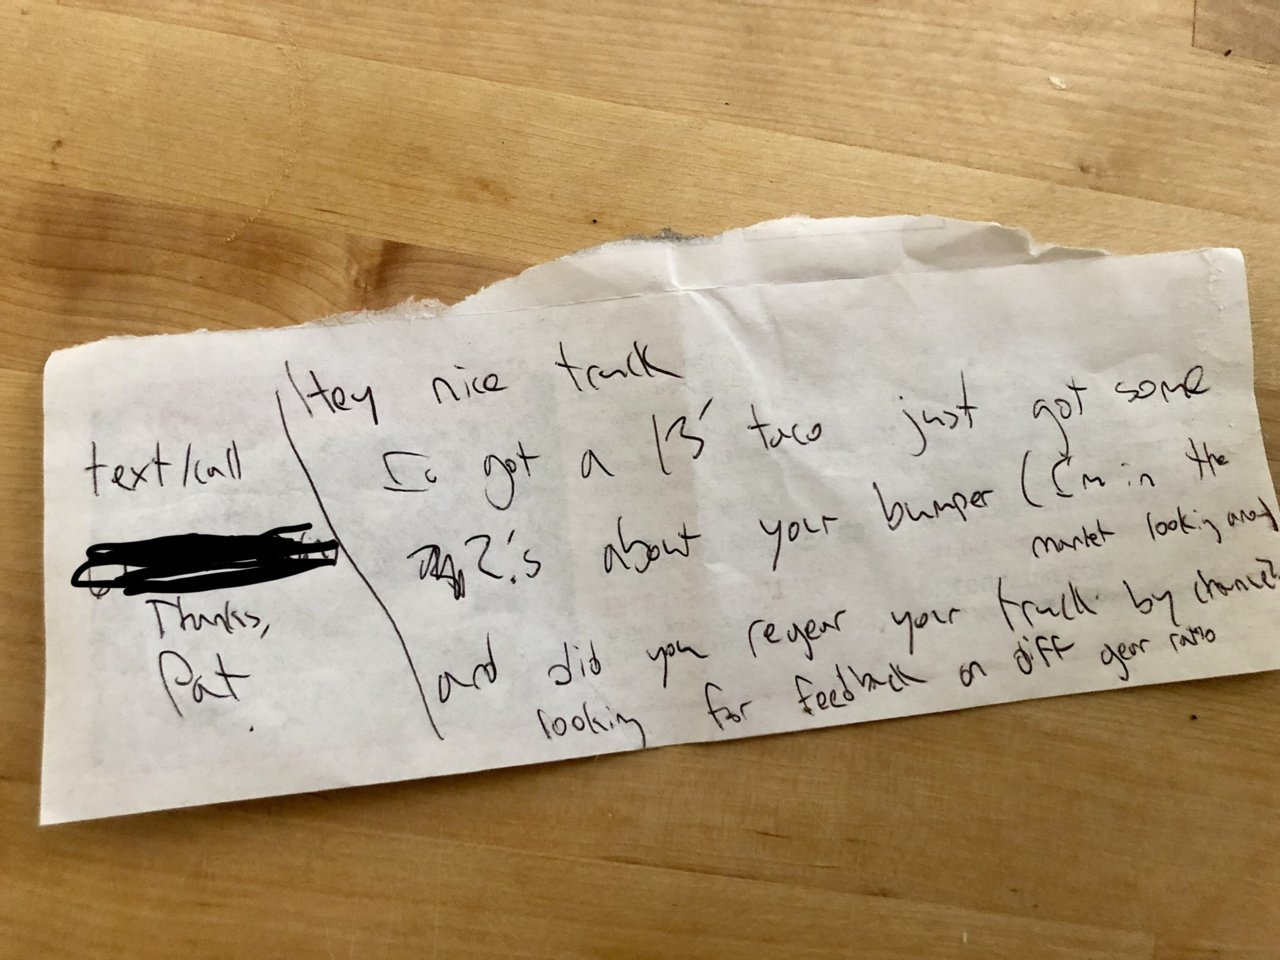 Hey nice truck
I got a 13' taco just got some
?'s about your bumper (I'm in the
market looking around
and did you regear your truck by chance?
looking for feedback on diff gear ratio
text/call
Thanks,
Pat.